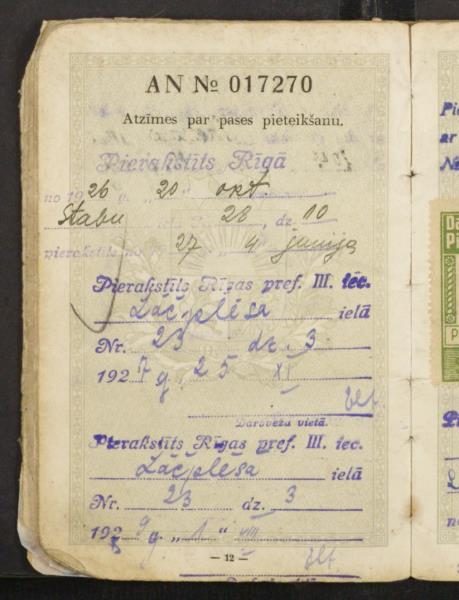 AN № 017270
Atzīmes par pases pieteikšanu.
Pierakstīts Rīgā
no 1926 g. „20" okt.
Stabu ielā 28, dz. 10
pierakstīts no 27 „4" junija
Pierakstīts Rīgas pref. III. iec.
Lāčplēša ielā
Nr. 23 dz. 3
1927 g. 25 XI
Darbvežu vietā.
Pierakstīts Rīgas pref. III. iec.
Lāčplēša ielā
Nr. 23 dz. 3
1929 g. „1" VIII
— 12 —
Pie
ar
N
Da
Pi
P
L